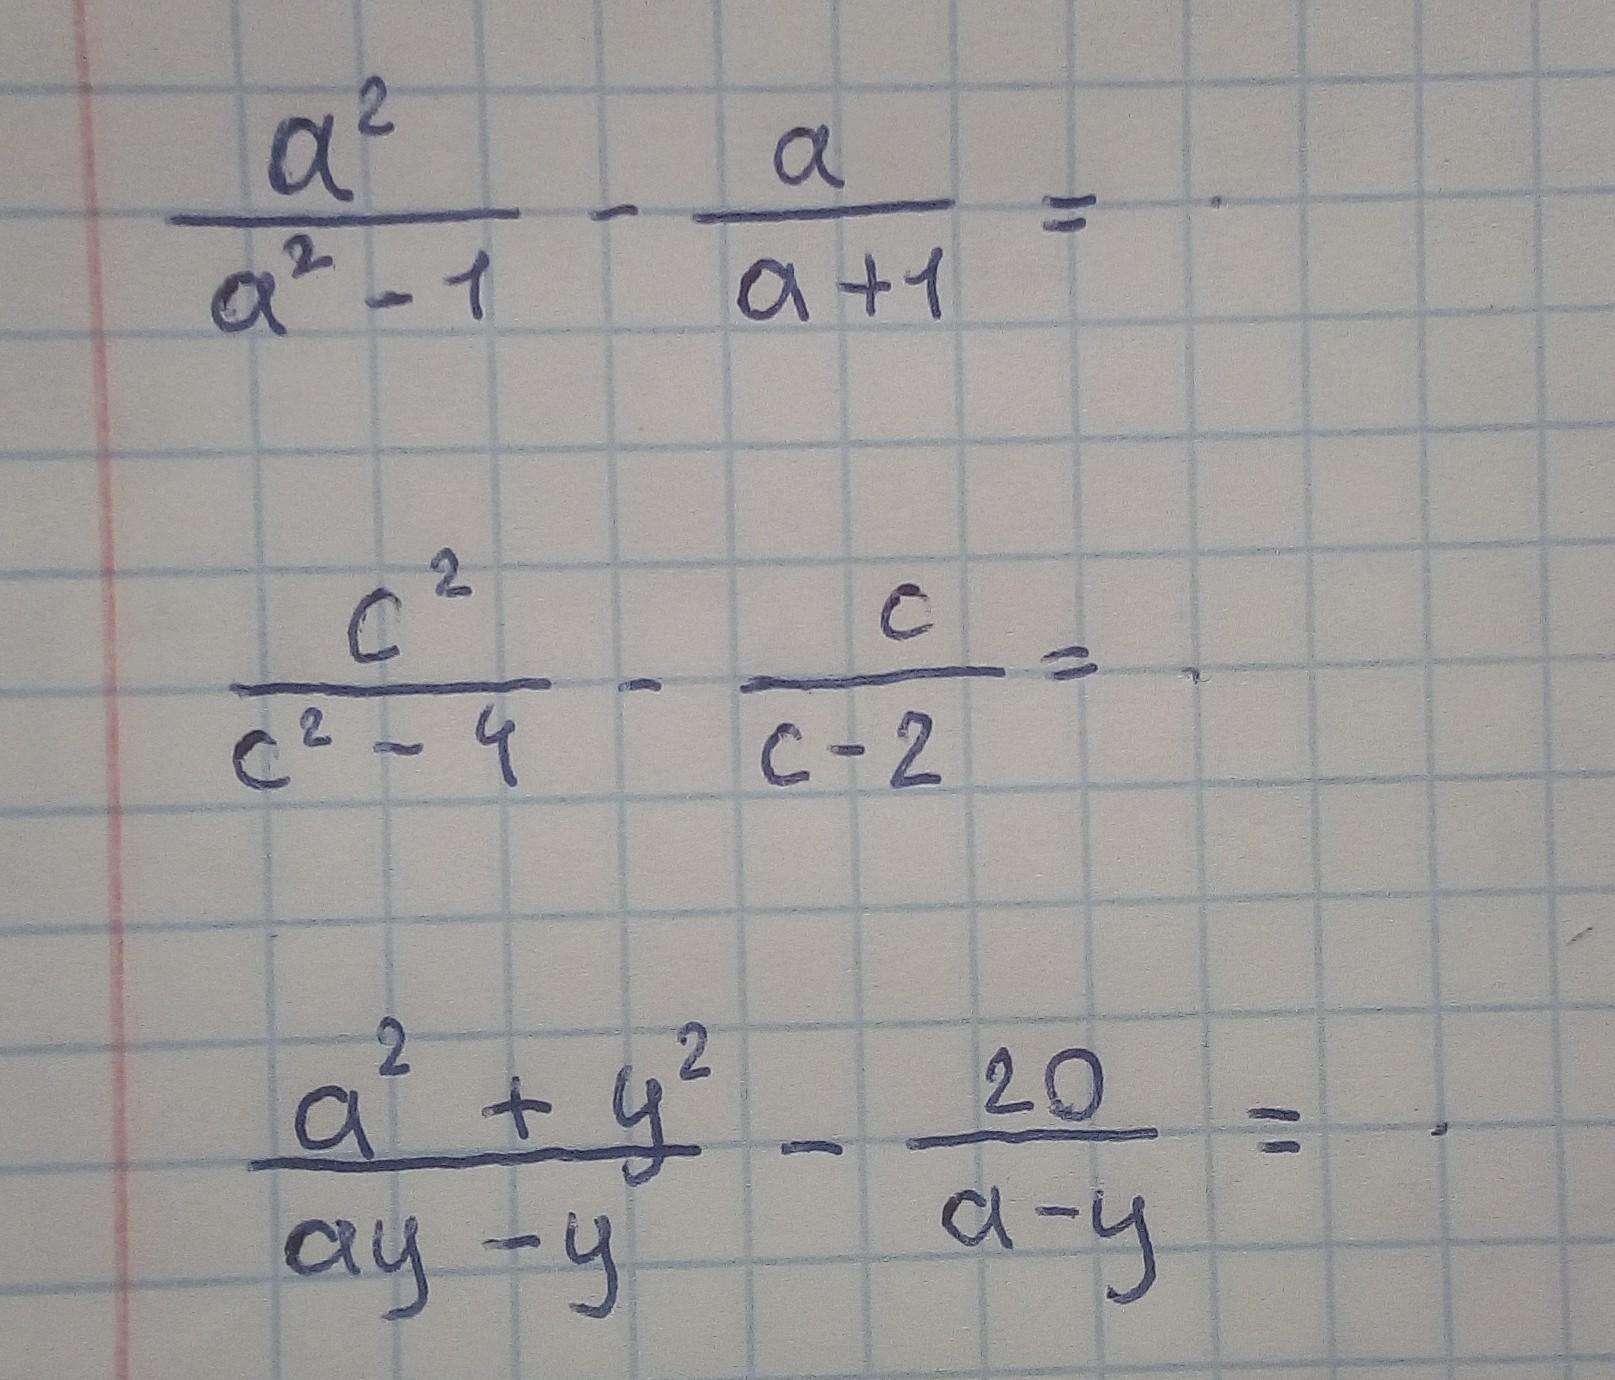 a² / (a² - 1) - a / (a + 1) =
c² / (c² - 4) - c / (c - 2) =
(a² + y²) / (ay - y) - 20 / (a - y) =